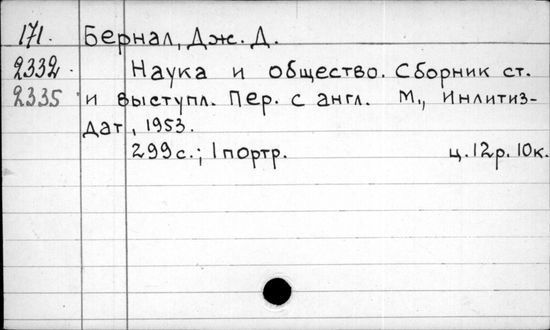 171. Бернал, Дж. Д.
2332. Наука и общество. Сборник ст.
2335 и выступл. Пер. с англ. М., Инлитиз-
дат, 1953.
299с.; 1портр. ц.12р.10к.